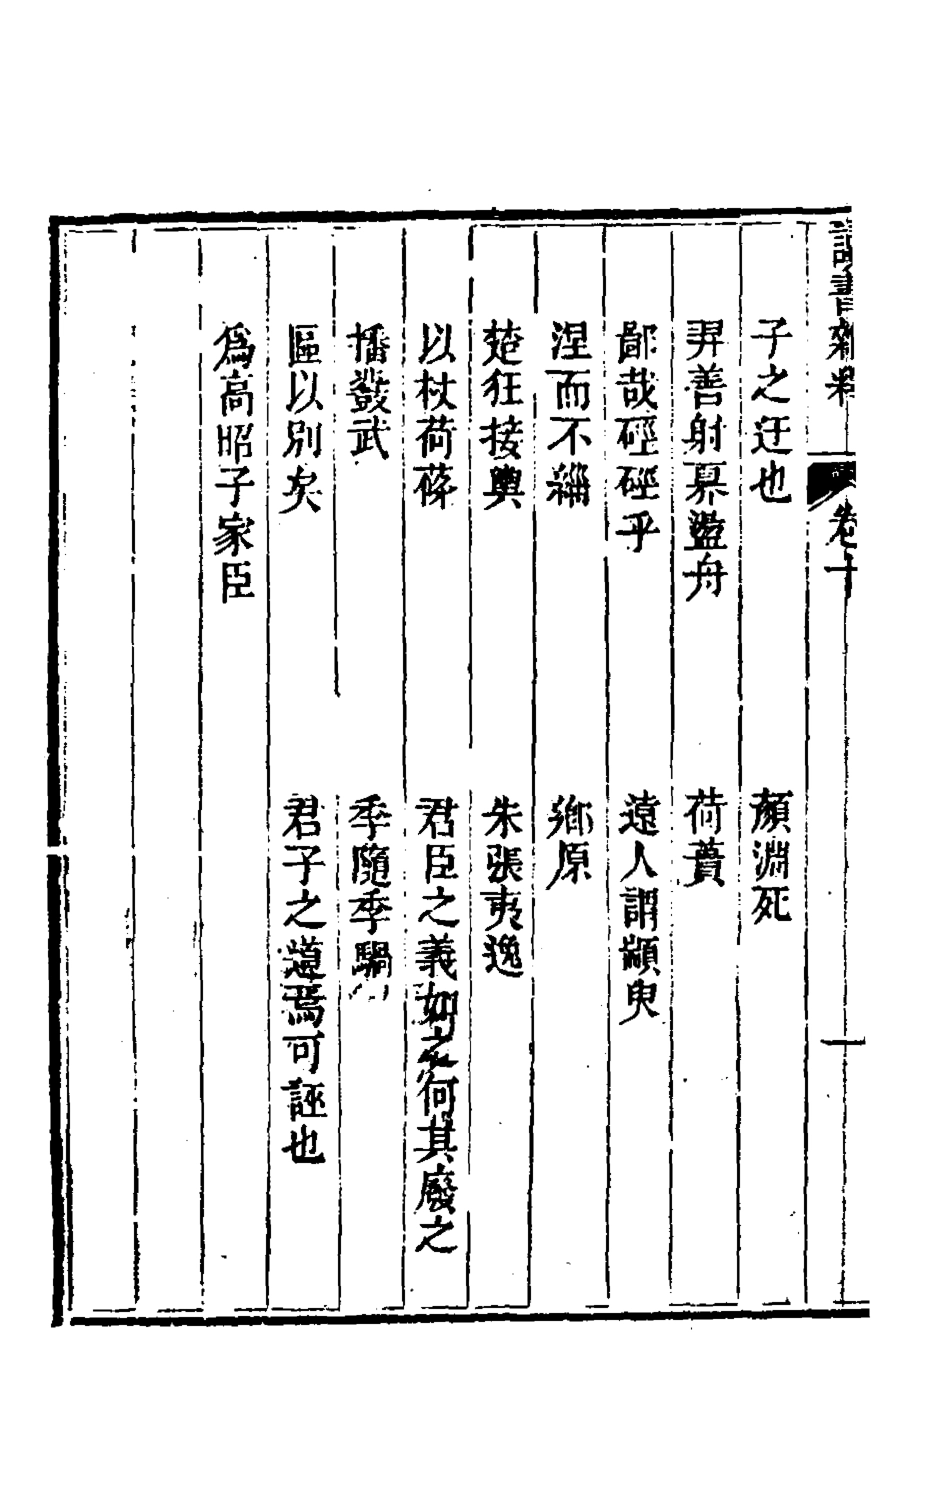 讀書雜釋
卷十
一
子之迂也
顏淵死
羿善射奡盪舟
荷蕢
鄙哉硜硜乎
遠人謂顓臾
涅而不緇
鄉原
楚狂接輿
朱張夷逸
以杖荷蓧
君臣之義如之何其廢之
播鼗武
季隨季騧
區以別矣
君子之道焉可誣也
爲高昭子家臣